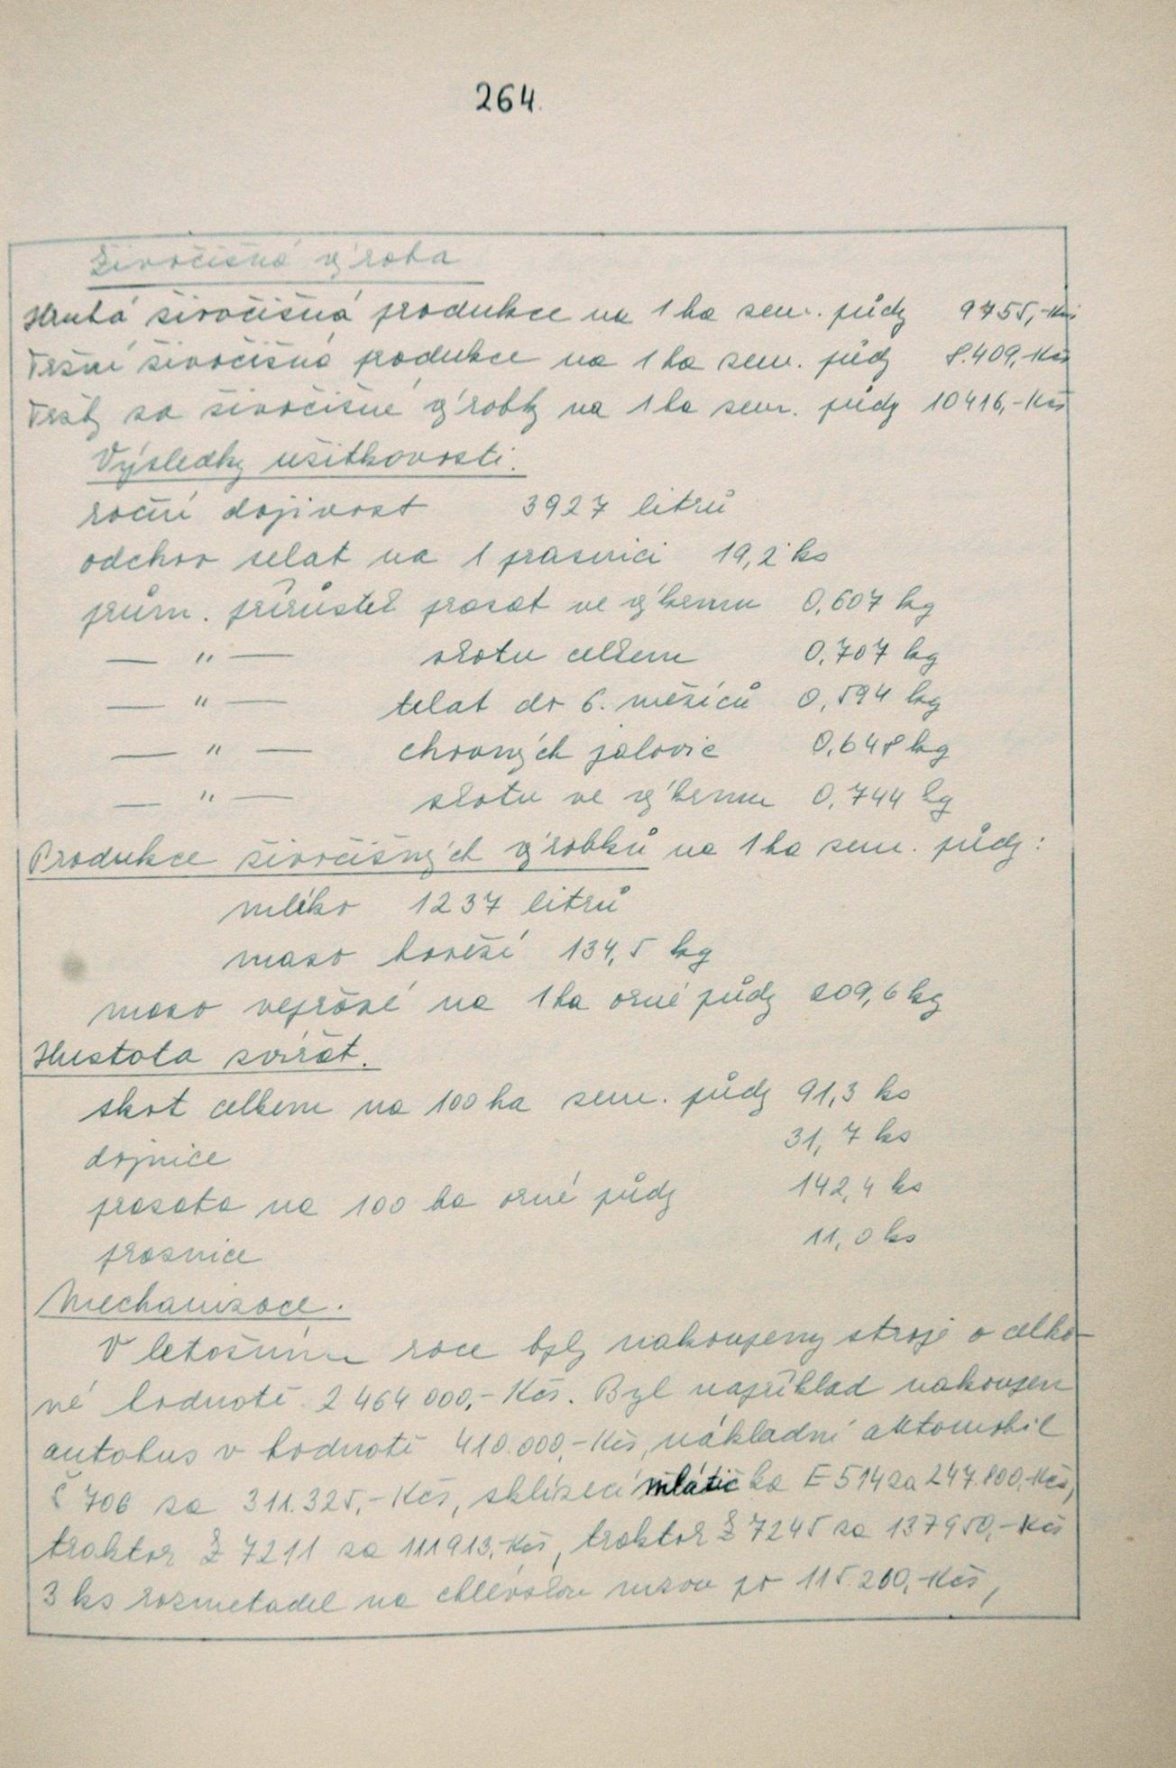 264.
Živočišná výroba
Hrubá živočišná produkce na 1 ha zem. půdy 9755,-Kčs
Tržní živočišná produkce na 1 ha zem. půdy 8.409,-Kčs
Tržby za živočišné výrobky na 1 ha zem. půdy 10416,-Kčs
Výsledky užitkovosti.
roční dojivost 3927 litrů
odchov selat na 1 prasnici 19,2 ks
prům. přírůstek prasat ve výkrmu 0,607 kg
— " — skotu celkem 0,707 kg
— " — telat do 6. měsíců 0,594 kg
— " — chovných jalovic 0,648 kg
— " — skotu ve výkrmu 0,744 kg
Produkce živočišných výrobků na 1 ha zem. půdy:
mléko 1237 litrů
maso hovězí 134,5 kg
maso vepřové na 1 ha orné půdy 209,6 kg
Hustota zvířat.
skot celkem na 100 ha zem. půdy 91,3 ks
dojnice 31,7 ks
prasata na 100 ha orné půdy 142,4 ks
prasnice 11,0 ks
Mechanizace.
V letošním roce byly nakoupeny stroje o celko-
vé hodnotě 2 464 000,- Kčs. Byl například nakoupen
autobus v hodnotě 410.000,- Kčs, nákladní automobil
Š 706 za 311.325,- Kčs, sklízecí mlátička E 514 za 247.800,-Kčs,
traktor Z 7211 za 111913,-Kčs, traktor Z 7245 za 137950,-Kčs
3 ks rozmetadel na chlévskou mrvu po 115.200,-Kčs,